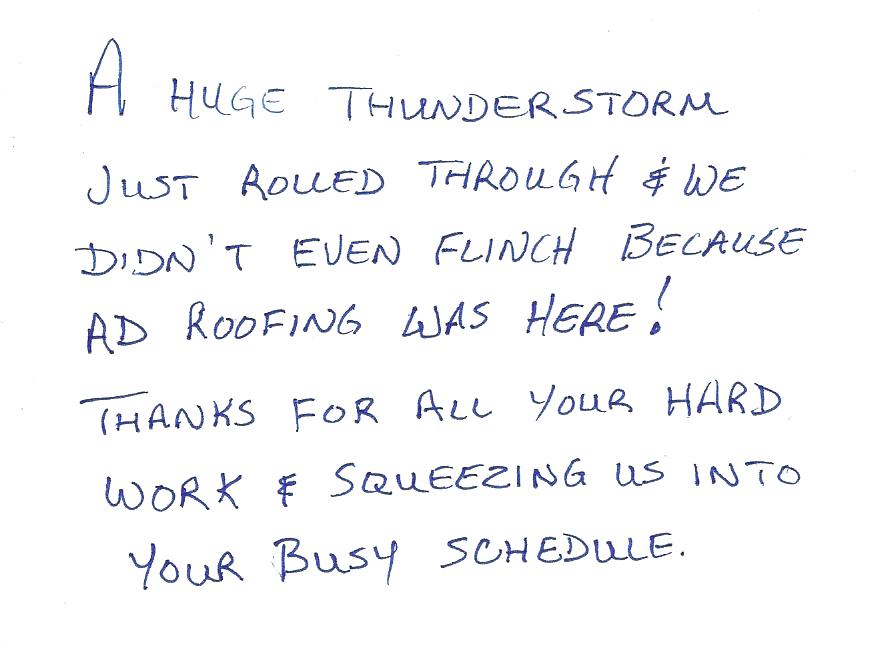 A HUGE THUNDERSTORM
JUST ROLLED THROUGH & WE
DIDN'T EVEN FLINCH BECAUSE
AD ROOFING WAS HERE!
THANKS FOR ALL YOUR HARD
WORK & SQUEEZING US INTO
YOUR BUSY SCHEDULE.